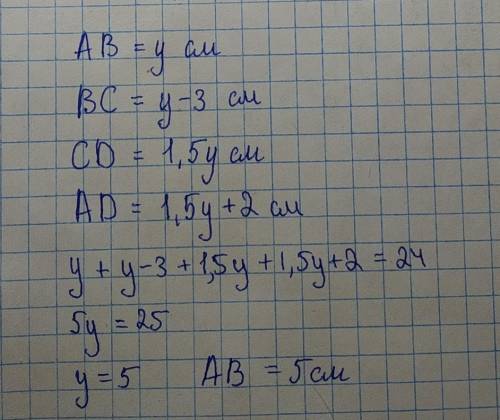 AB = y см
BC = y-3 см
CD = 1,5y см
AD = 1,5y+2 см
y + y-3 + 1,5y + 1,5y+2 = 24
5y = 25
y = 5 AB = 5 см